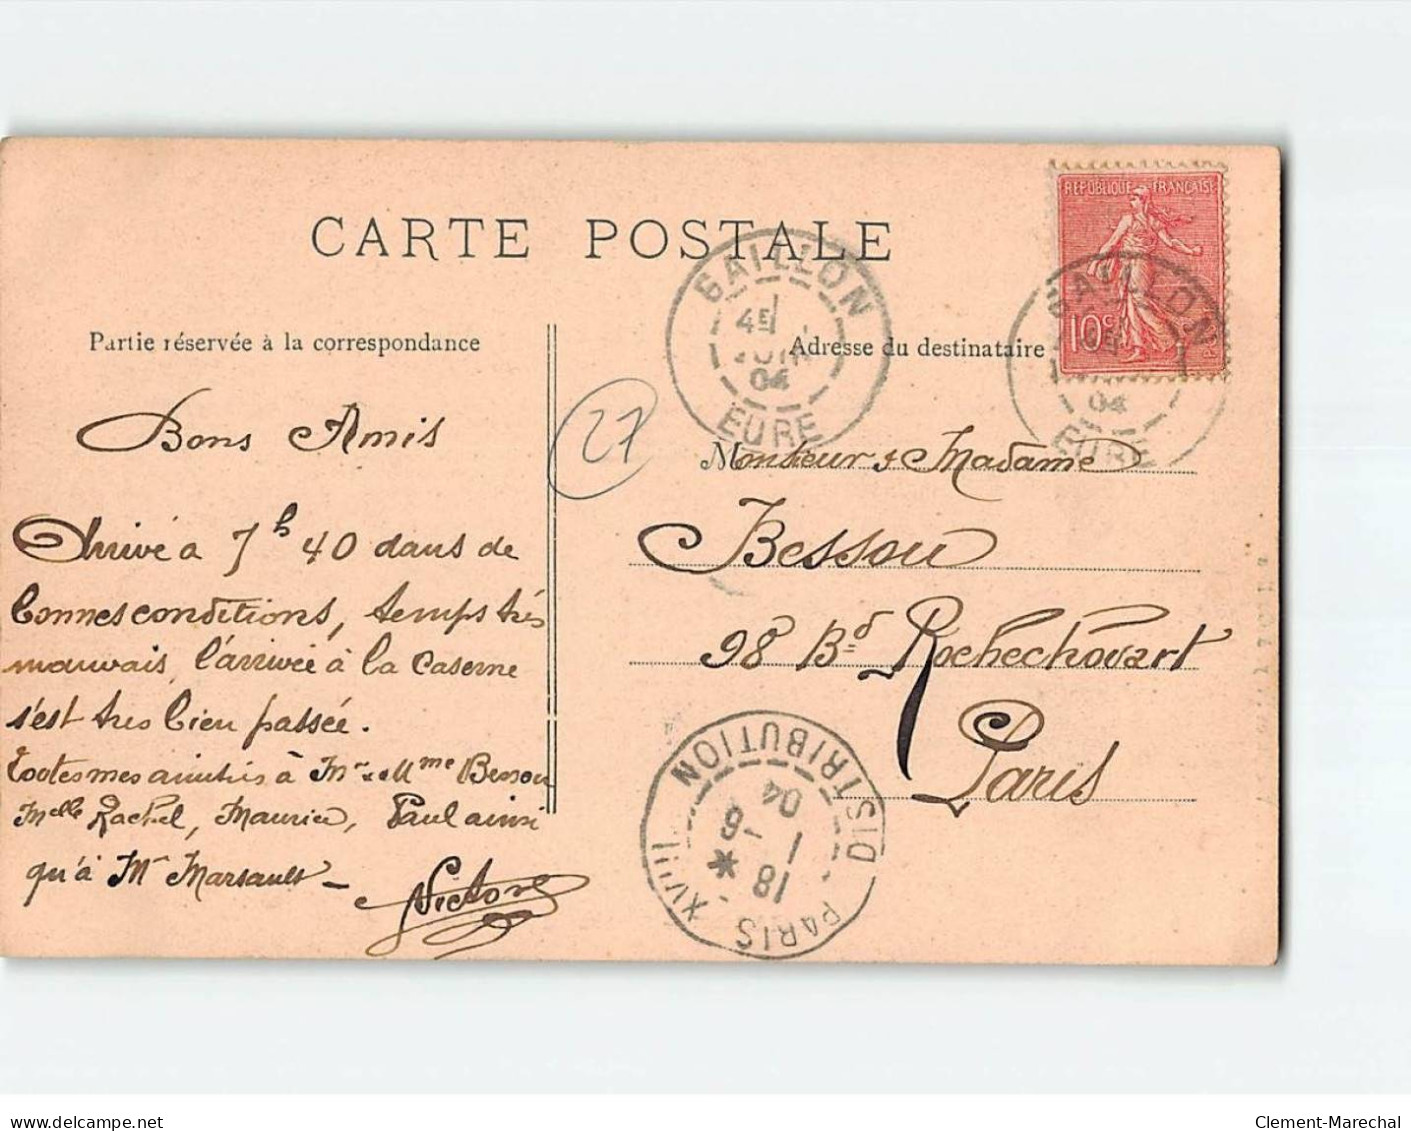 CARTE POSTALE
REPUBLIQUE FRANÇAISE
10c
GAILLON
4E
JUIN
04
EURE
GAILLON
04
EURE
Partie réservée à la correspondance
Adresse du destinataire
27
Bons Amis
Arrivé à 7 h 40 dans de
bonnes conditions, temps très
mauvais, l'arrivée à la caserne
s'est très bien passée.
Toutes mes amitiés à Mr & Mme Bessou
Melle Rachel, Maurice, Paul ainsi
qu'à Mr Marsault –
Victor
Monsieur & Madame
Bessou
98 Bd Rochechouart
Paris
PARIS XVIII DISTRIBUTION
18 *
1 -6
04
delcampe.net
Clement-Marechal